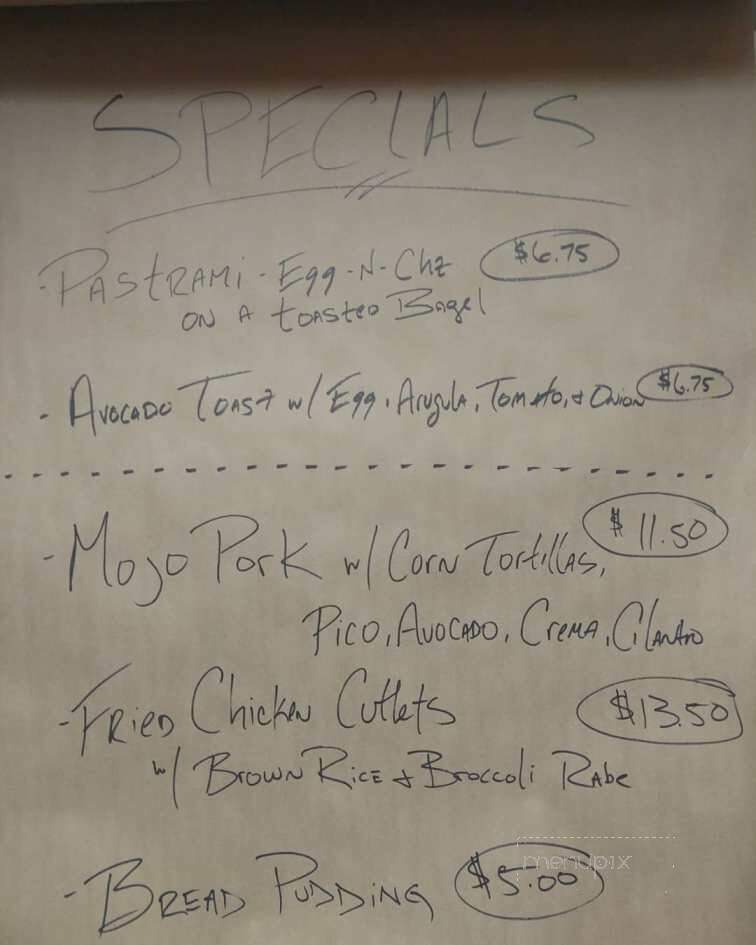 SPECIALS
- PASTRAMI - Egg -N- Chz $6.75
ON A toasted Bagel
- AVOCADO TOAST w/ Egg, Arugula, Tomato, & Onion $6.75
- MOJO PORK w/ CORN Tortillas, $11.50
PICO, AVOCADO, CREMA, Cilantro
- FRIED Chicken Cutlets $13.50
w/ BROWN RICE & Broccoli RABE
- BREAD PUDDING $5.00
menupix